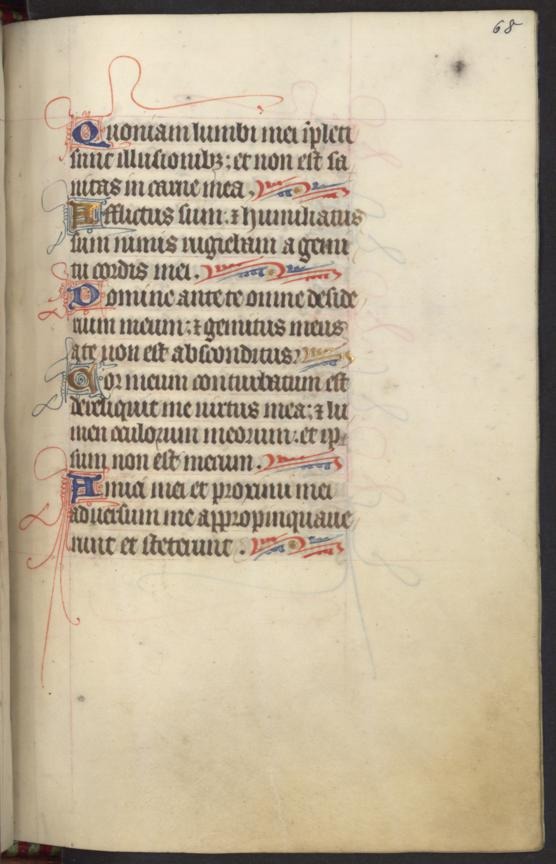 68
Quoniam lumbi mei īpleti
sunt illusionibꝫ: et non est sa
nitas in carne mea.
Afflictus sum: ⁊ humiliatus
sum nimis rugiebam a gemi
tu cordis mei.
Domine ante te omne deside
rium meum: ⁊ gemitus meus
a te non est absconditus:
Cor meum conturbatum est
dereliquit me uirtus mea: ⁊ lu
men oculorum meorum: et ip
sum non est mecum.
Amici mei et proximi mei
aduersum me appropinquaue
runt et steterunt.